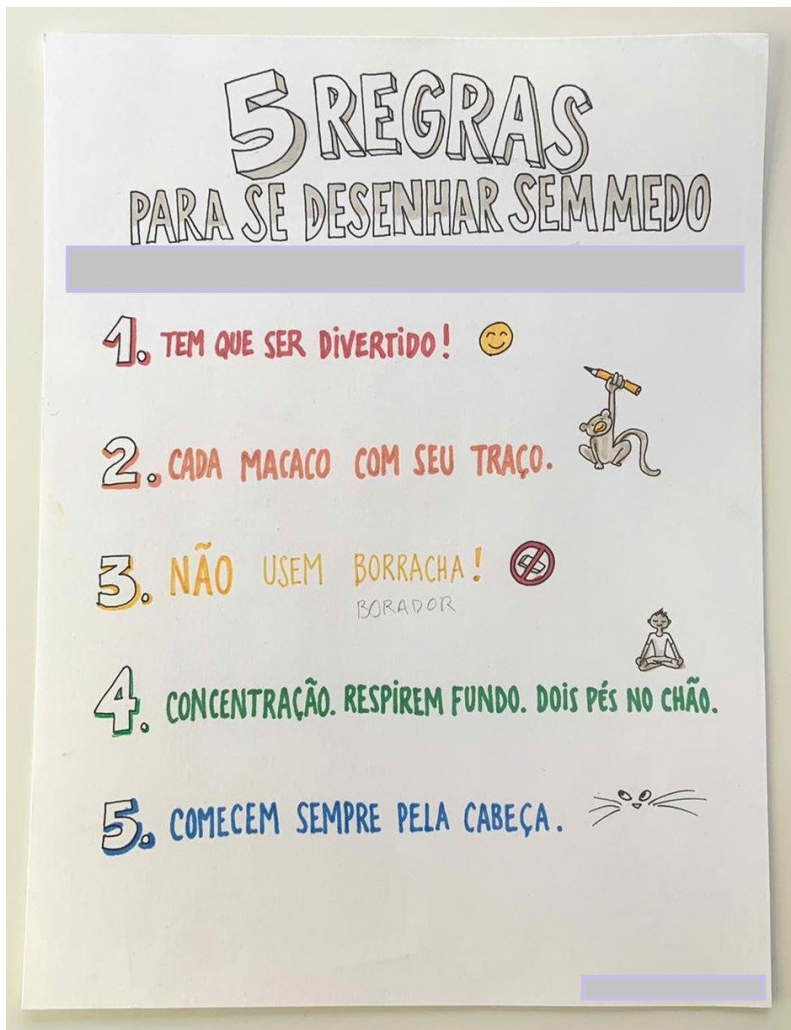 5 REGRAS
PARA SE DESENHAR SEM MEDO
1. TEM QUE SER DIVERTIDO!
2. CADA MACACO COM SEU TRAÇO.
3. NÃO USEM BORRACHA!
BORADOR
4. CONCENTRAÇÃO. RESPIREM FUNDO. DOIS PÉS NO CHÃO.
5. COMECEM SEMPRE PELA CABEÇA.